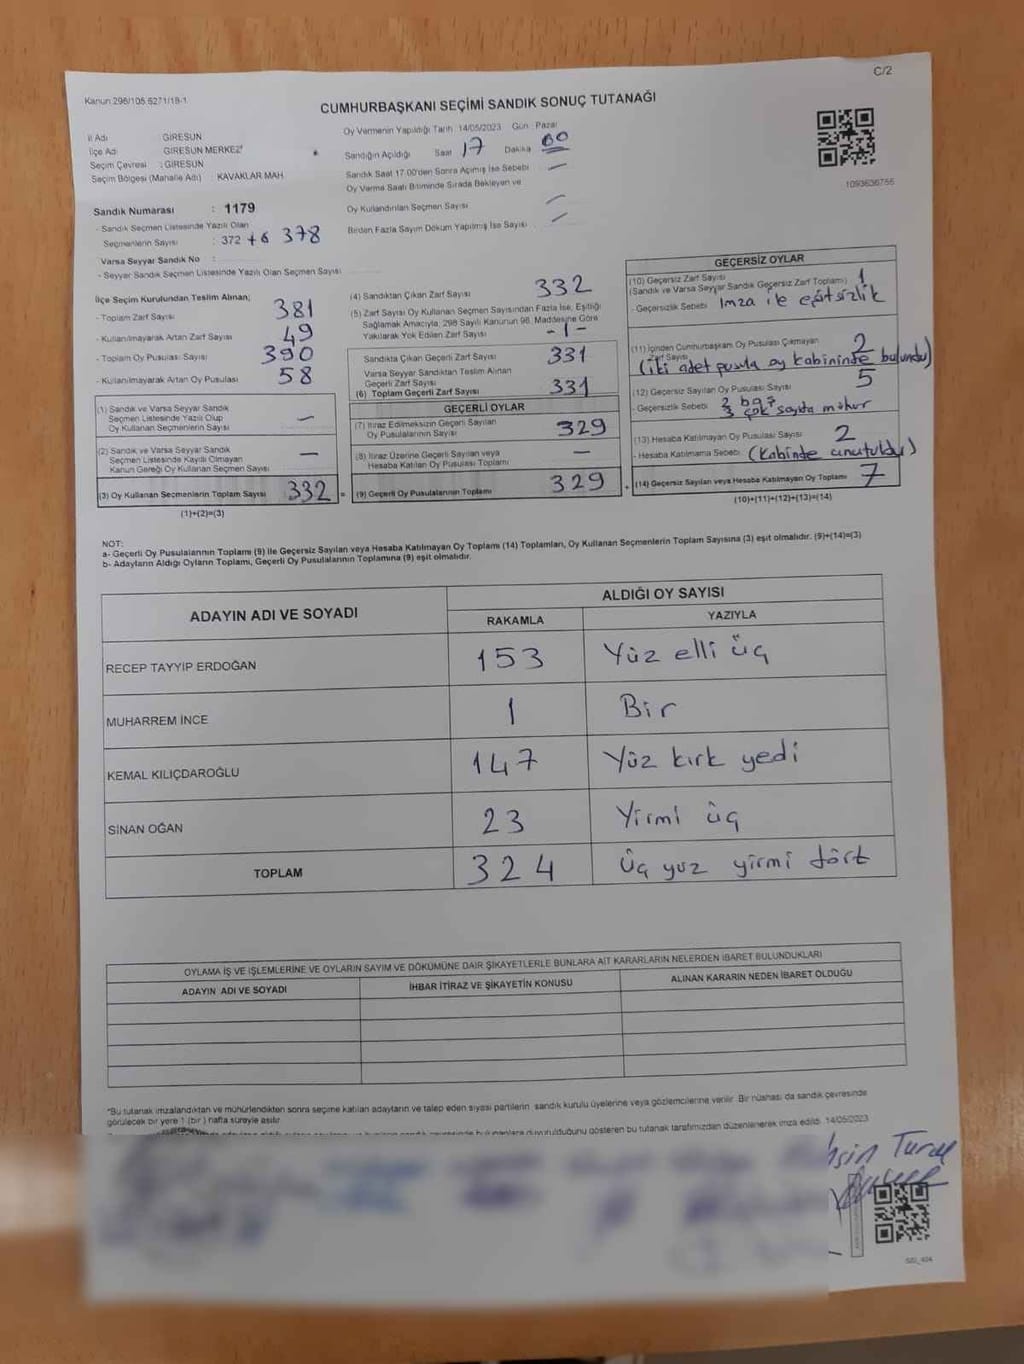 C/2
Kanun 298/105.6271/18-1
CUMHURBAŞKANI SEÇİMİ SANDIK SONUÇ TUTANAĞI
İl Adı : GİRESUN
İlçe Adı GİRESUN MERKEZ
Seçim Çevresi : GİRESUN
Seçim Bölgesi (Mahalle Adı) : KAVAKLAR MAH
Oy Vermenin Yapıldığı Tarih 14/05/2023 Gün Pazar
Sandığın Açıldığı Saat 17 Dakika 00
Sandık Saat 17:00'den Sonra Açılmış İse Sebebi —
Oy Verme Saati Bitiminde Sırada Bekleyen ve
Oy Kullandırılan Seçmen Sayısı —
Birden Fazla Sayım Döküm Yapılmış İse Sayısı —
1093636756
Sandık Numarası : 1179
- Sandık Seçmen Listesinde Yazılı Olan
Seçmenlerin Sayısı : 372 +6 378
Varsa Seyyar Sandık No :
- Seyyar Sandık Seçmen Listesinde Yazılı Olan Seçmen Sayısı
İlçe Seçim Kurulundan Teslim Alınan;
- Toplam Zarf Sayısı 381
- Kullanılmayarak Artan Zarf Sayısı 49
- Toplam Oy Pusulası Sayısı 390
- Kullanılmayarak Artan Oy Pusulası 58
(1) Sandık ve Varsa Seyyar Sandık
Seçmen Listesinde Yazılı Olup
Oy Kullanan Seçmenlerin Sayısı —
(2) Sandık ve Varsa Seyyar Sandık
Seçmen Listesinde Kayıtlı Olmayan
Kanun Gereği Oy Kullanan Seçmen Sayısı —
(3) Oy Kullanan Seçmenlerin Toplam Sayısı 332 =
(1)+(2)=(3)
(4) Sandıktan Çıkan Zarf Sayısı 332
(5) Zarf Sayısı Oy Kullanan Seçmen Sayısından Fazla İse, Eşitliği
Sağlamak Amacıyla, 298 Sayılı Kanunun 98. Maddesine Göre
Yakılarak Yok Edilen Zarf Sayısı -1-
Sandıkta Çıkan Geçerli Zarf Sayısı 331
Varsa Seyyar Sandıktan Teslim Alınan
Geçerli Zarf Sayısı
(6) Toplam Geçerli Zarf Sayısı 331
GEÇERLİ OYLAR
(7) İtiraz Edilmeksizin Geçerli Sayılan
Oy Pusulalarının Sayısı 329
(8) İtiraz Üzerine Geçerli Sayılan veya
Hesaba Katılan Oy Pusulası Toplamı —
(9) Geçerli Oy Pusulalarının Toplamı 329 +
GEÇERSİZ OYLAR
(10) Geçersiz Zarf Sayısı
(Sandık ve Varsa Seyyar Sandık Geçersiz Zarf Toplamı) 1
- Geçersizlik Sebebi İmza ile eşitsizlik
(11) İçinden Cumhurbaşkanı Oy Pusulası Çıkmayan
Zarf Sayısı 2
(iki adet pusula oy kabininde bulundu)
(12) Geçersiz Sayılan Oy Pusulası Sayısı 5
- Geçersizlik Sebebi 2 boş
3 çok sayıda mühür
(13) Hesaba Katılmayan Oy Pusulası Sayısı 2
- Hesaba Katılmama Sebebi (Kabinde unutuldu)
(14) Geçersiz Sayılan veya Hesaba Katılmayan Oy Toplamı 7
(10)+(11)+(12)+(13)=(14)
NOT:
a- Geçerli Oy Pusulalarının Toplamı (9) ile Geçersiz Sayılan veya Hesaba Katılmayan Oy Toplamı (14) Toplamları, Oy Kullanan Seçmenlerin Toplam Sayısına (3) eşit olmalıdır. (9)+(14)=(3)
b- Adayların Aldığı Oyların Toplamı, Geçerli Oy Pusulalarının Toplamına (9) eşit olmalıdır.
ADAYIN ADI VE SOYADI ALDIĞI OY SAYISI
RAKAMLA YAZIYLA
RECEP TAYYİP ERDOĞAN 153 Yüz elli üç
MUHARREM İNCE 1 Bir
KEMAL KILIÇDAROĞLU 147 Yüz kırk yedi
SİNAN OĞAN 23 Yirmi üç
TOPLAM 324 Üç yüz yirmi dört
OYLAMA İŞ VE İŞLEMLERİNE VE OYLARIN SAYIM VE DÖKÜMÜNE DAİR ŞİKAYETLERLE BUNLARA AİT KARARLARIN NELERDEN İBARET BULUNDUKLARI
ADAYIN ADI VE SOYADI İHBAR İTİRAZ VE ŞİKAYETİN KONUSU ALINAN KARARIN NEDEN İBARET OLDUĞU
*Bu tutanak imzalandıktan ve mühürlendikten sonra seçime katılan adayların ve talep eden siyasi partilerin sandık kurulu üyelerine veya gözlemcilerine verilir. Bir nüshası da sandık çevresinde
görülecek bir yere 1 (bir) hafta süreyle asılır.
duyurulduğunu gösteren bu tutanak tarafımızdan düzenlenerek imza edildi. 14/05/2023